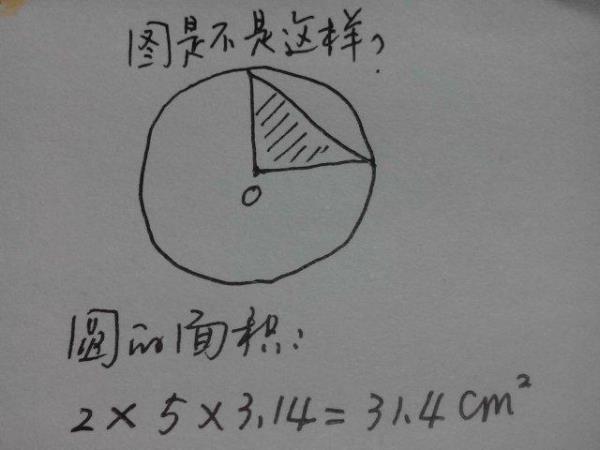 图是不是这样？
O
圆的面积：
2×5×3.14=31.4cm²